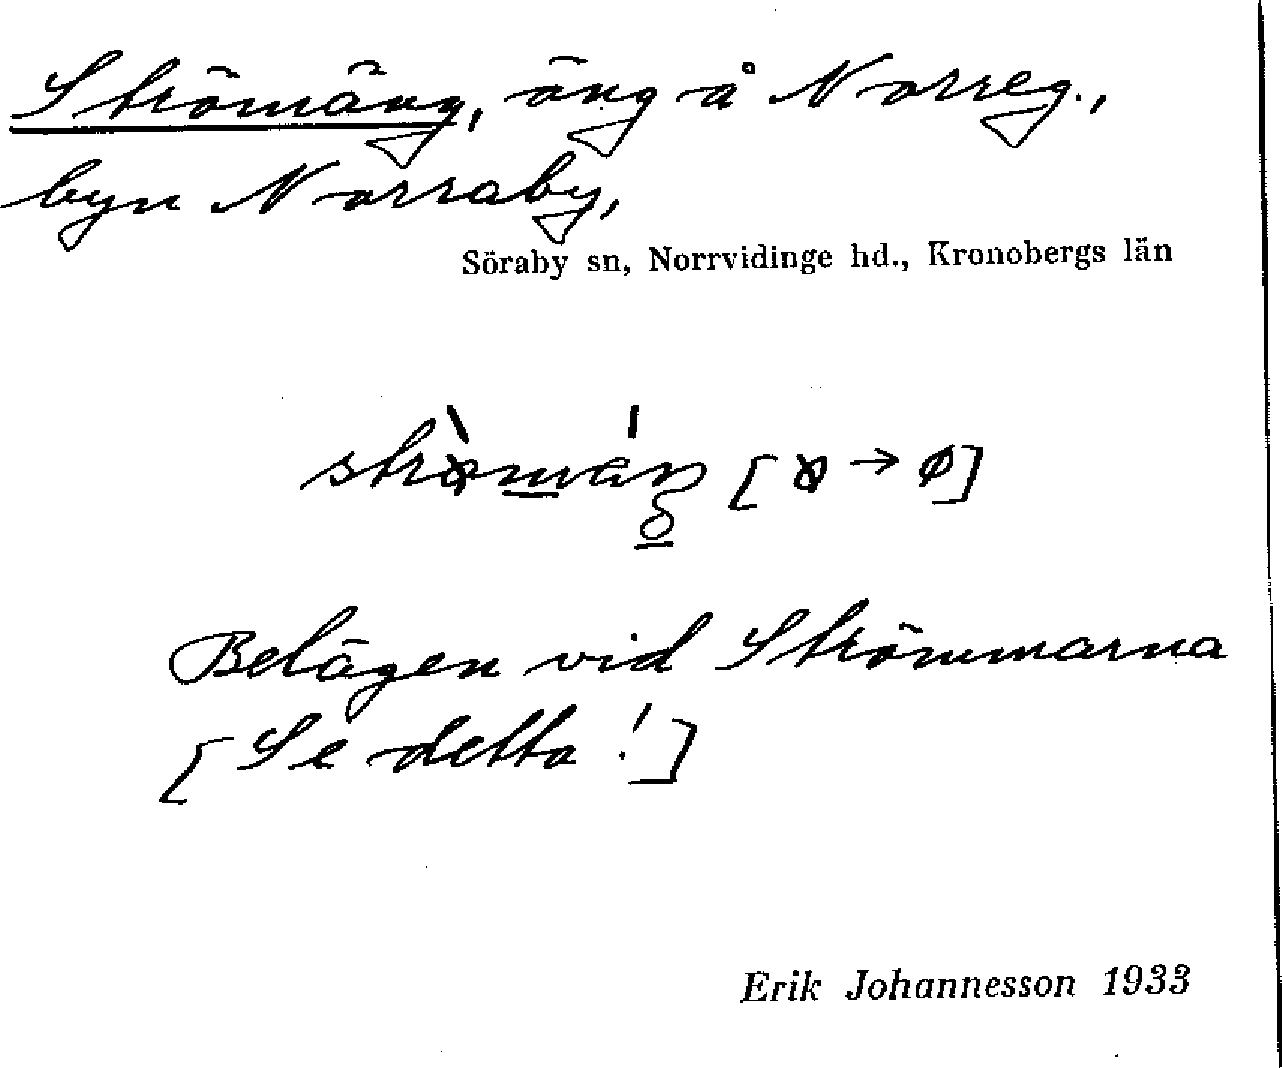 Strömäng, äng å Norreg.,
byn Norraby,
Söraby sn, Norrvidinge hd., Kronobergs län
Belägen vid Strömmarna
[Se detta!]
Erik Johannesson 1933